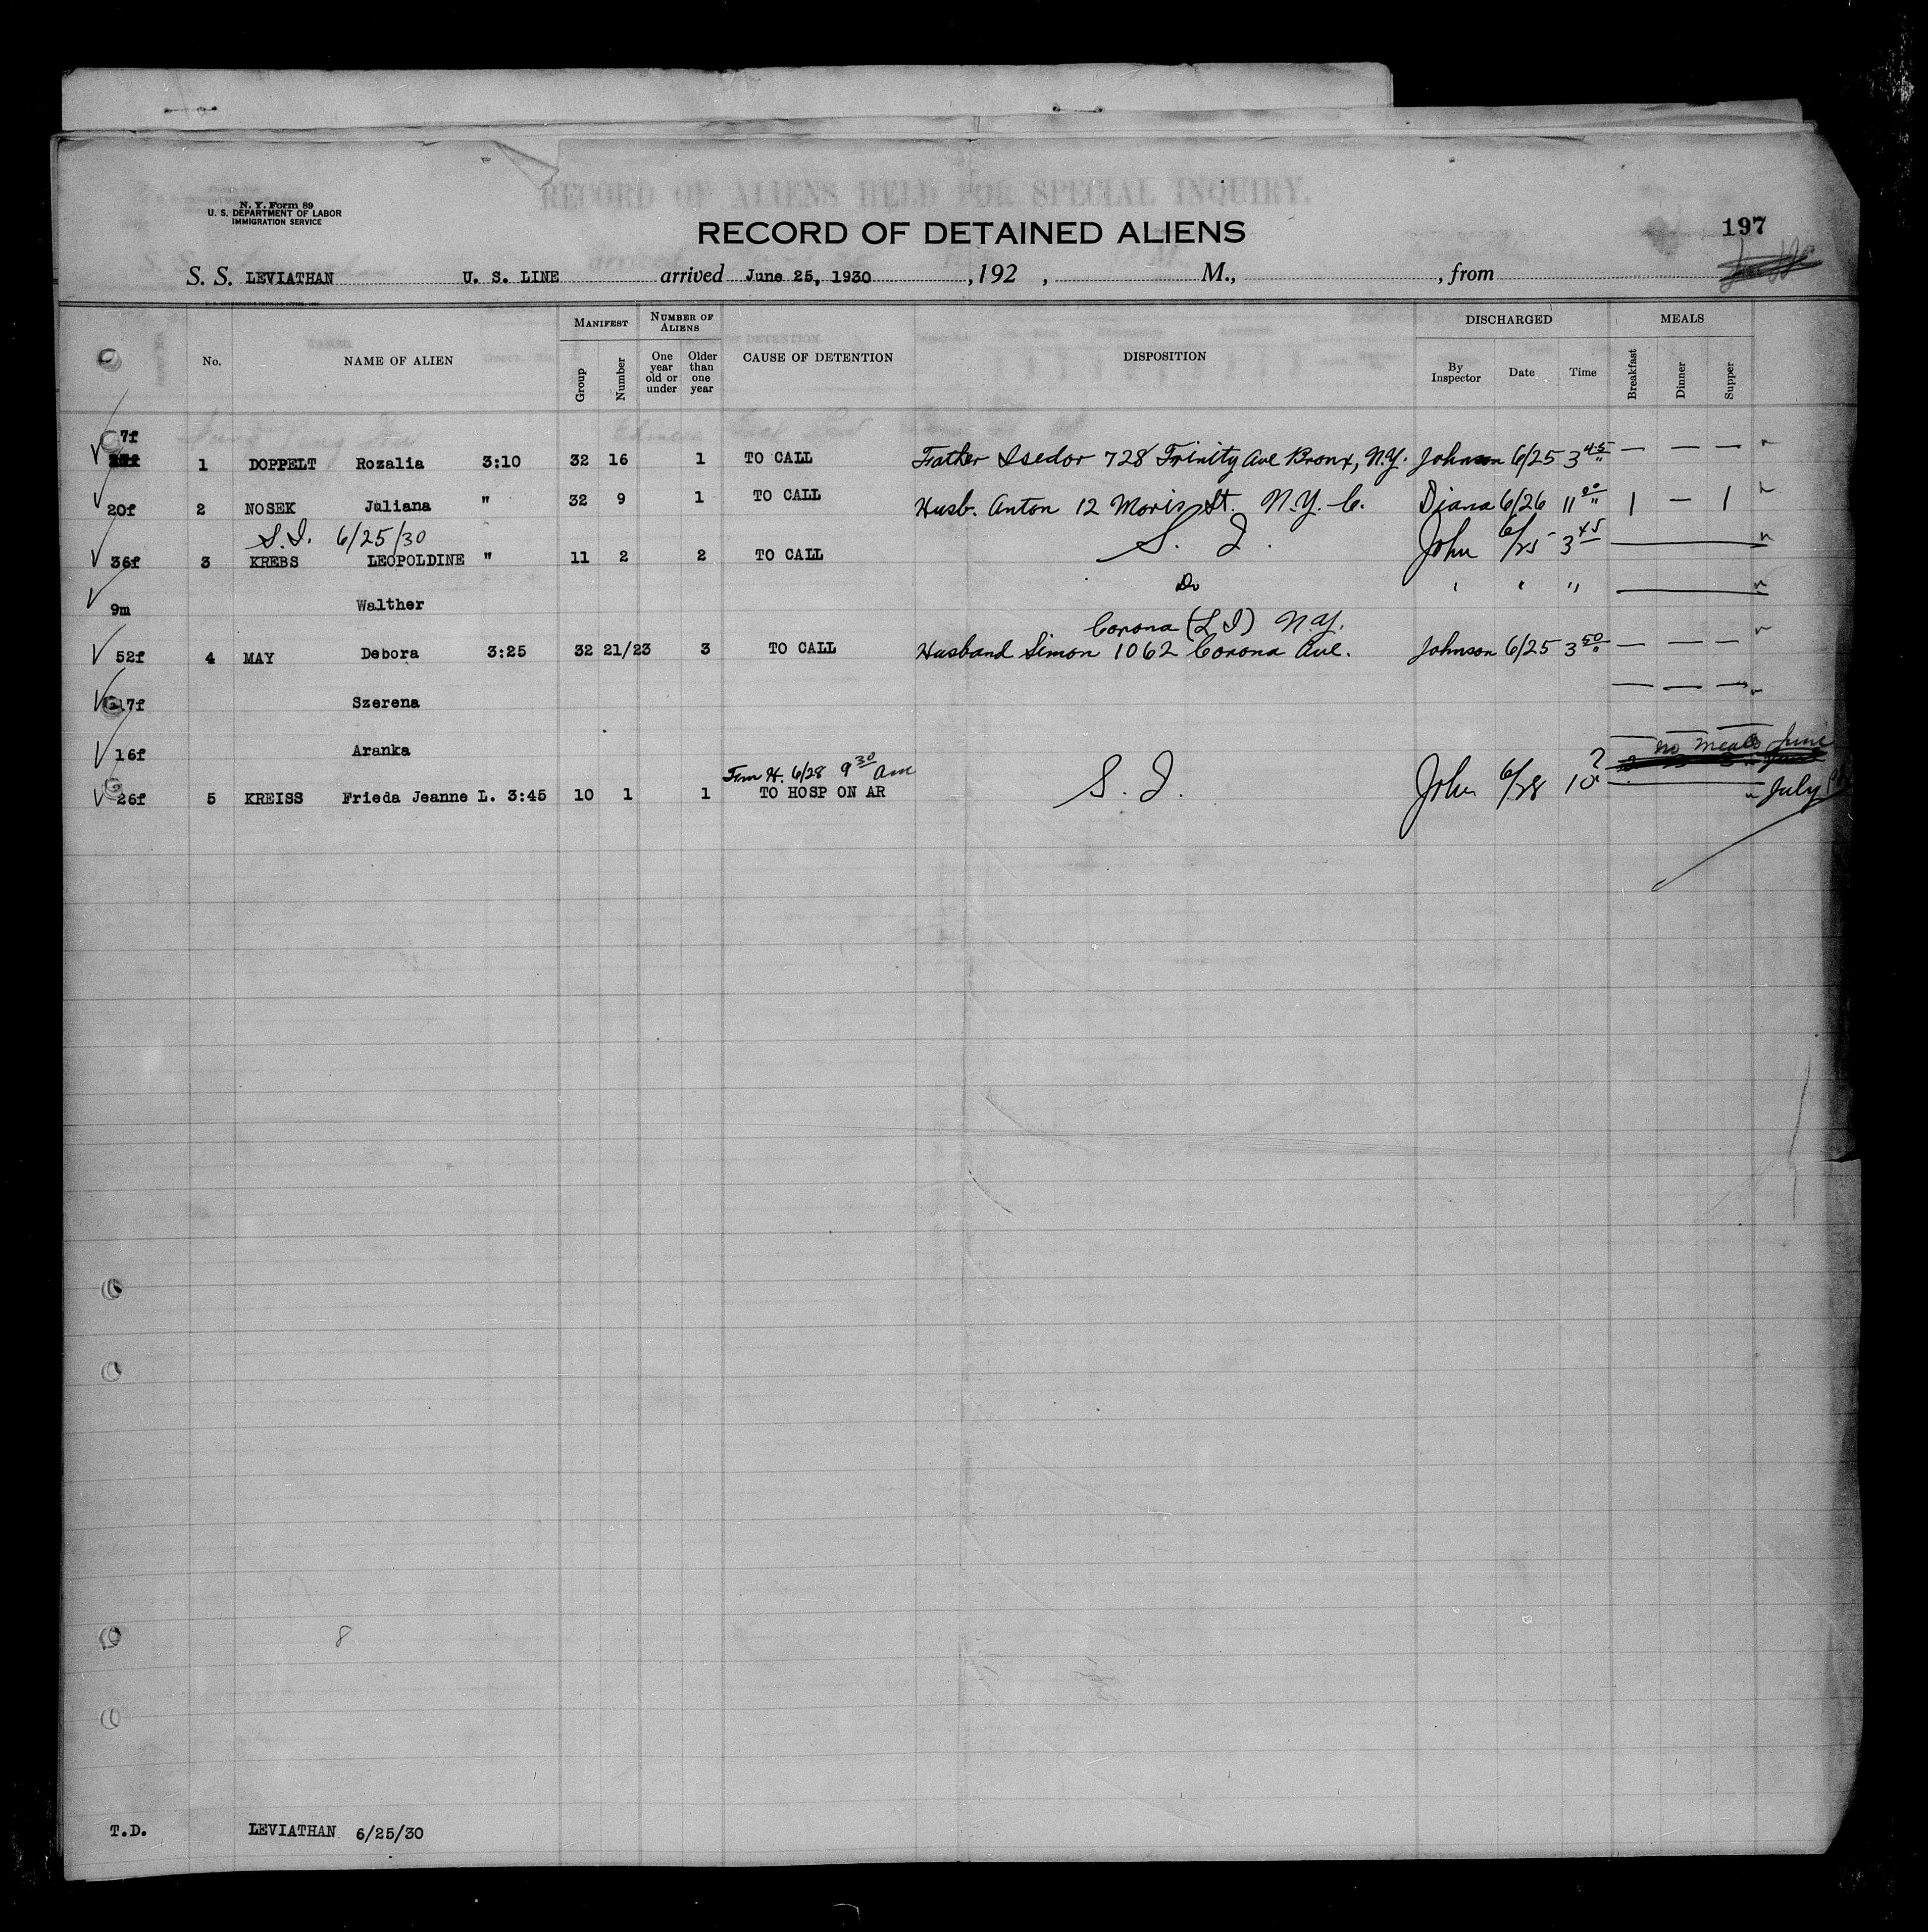 RECORD OF ALIENS HELD FOR SPECIAL INQUIRY.
N. Y. Form 89
U. S. DEPARTMENT OF LABOR
IMMIGRATION SERVICE
RECORD OF DETAINED ALIENS
197
S. S. LEVIATHAN U. S. LINE arrived June 25, 1930 , 192 , M., , from
MANIFEST NUMBER OF ALIENS DISCHARGED MEALS
No. NAME OF ALIEN Group Number One year old or under Older than one year CAUSE OF DETENTION DISPOSITION By Inspector Date Time Breakfast Dinner Supper
7f
1 DOPPELT Rozalia 3:10 32 16 1 TO CALL Father Isedor 728 Trinity Ave Bronx, N.Y. Johnson 6/25 3 45 — — —
20f 2 NOSEK Juliana " 32 9 1 TO CALL Husb. Anton 12 Moris St. N.Y. C. Diana 6/26 11 00 1 — 1
S.I. 6/25/30
36f 3 KREBS LEOPOLDINE " 11 2 2 TO CALL S. I. John 6/25 3 45
9m Walther Do " " "
Corona (L I) N.Y.
52f 4 MAY Debora 3:25 32 21/23 3 TO CALL Husband Simon 1062 Corona Ave. Johnson 6/25 3 50 — — —
17f Szerena — — —
16f Aranka
no meals June
From H. 6/28 9 30 am
26f 5 KREISS Frieda Jeanne L. 3:45 10 1 1 TO HOSP ON AR S. I. John 6/28 10 July
8
T.D. LEVIATHAN 6/25/30